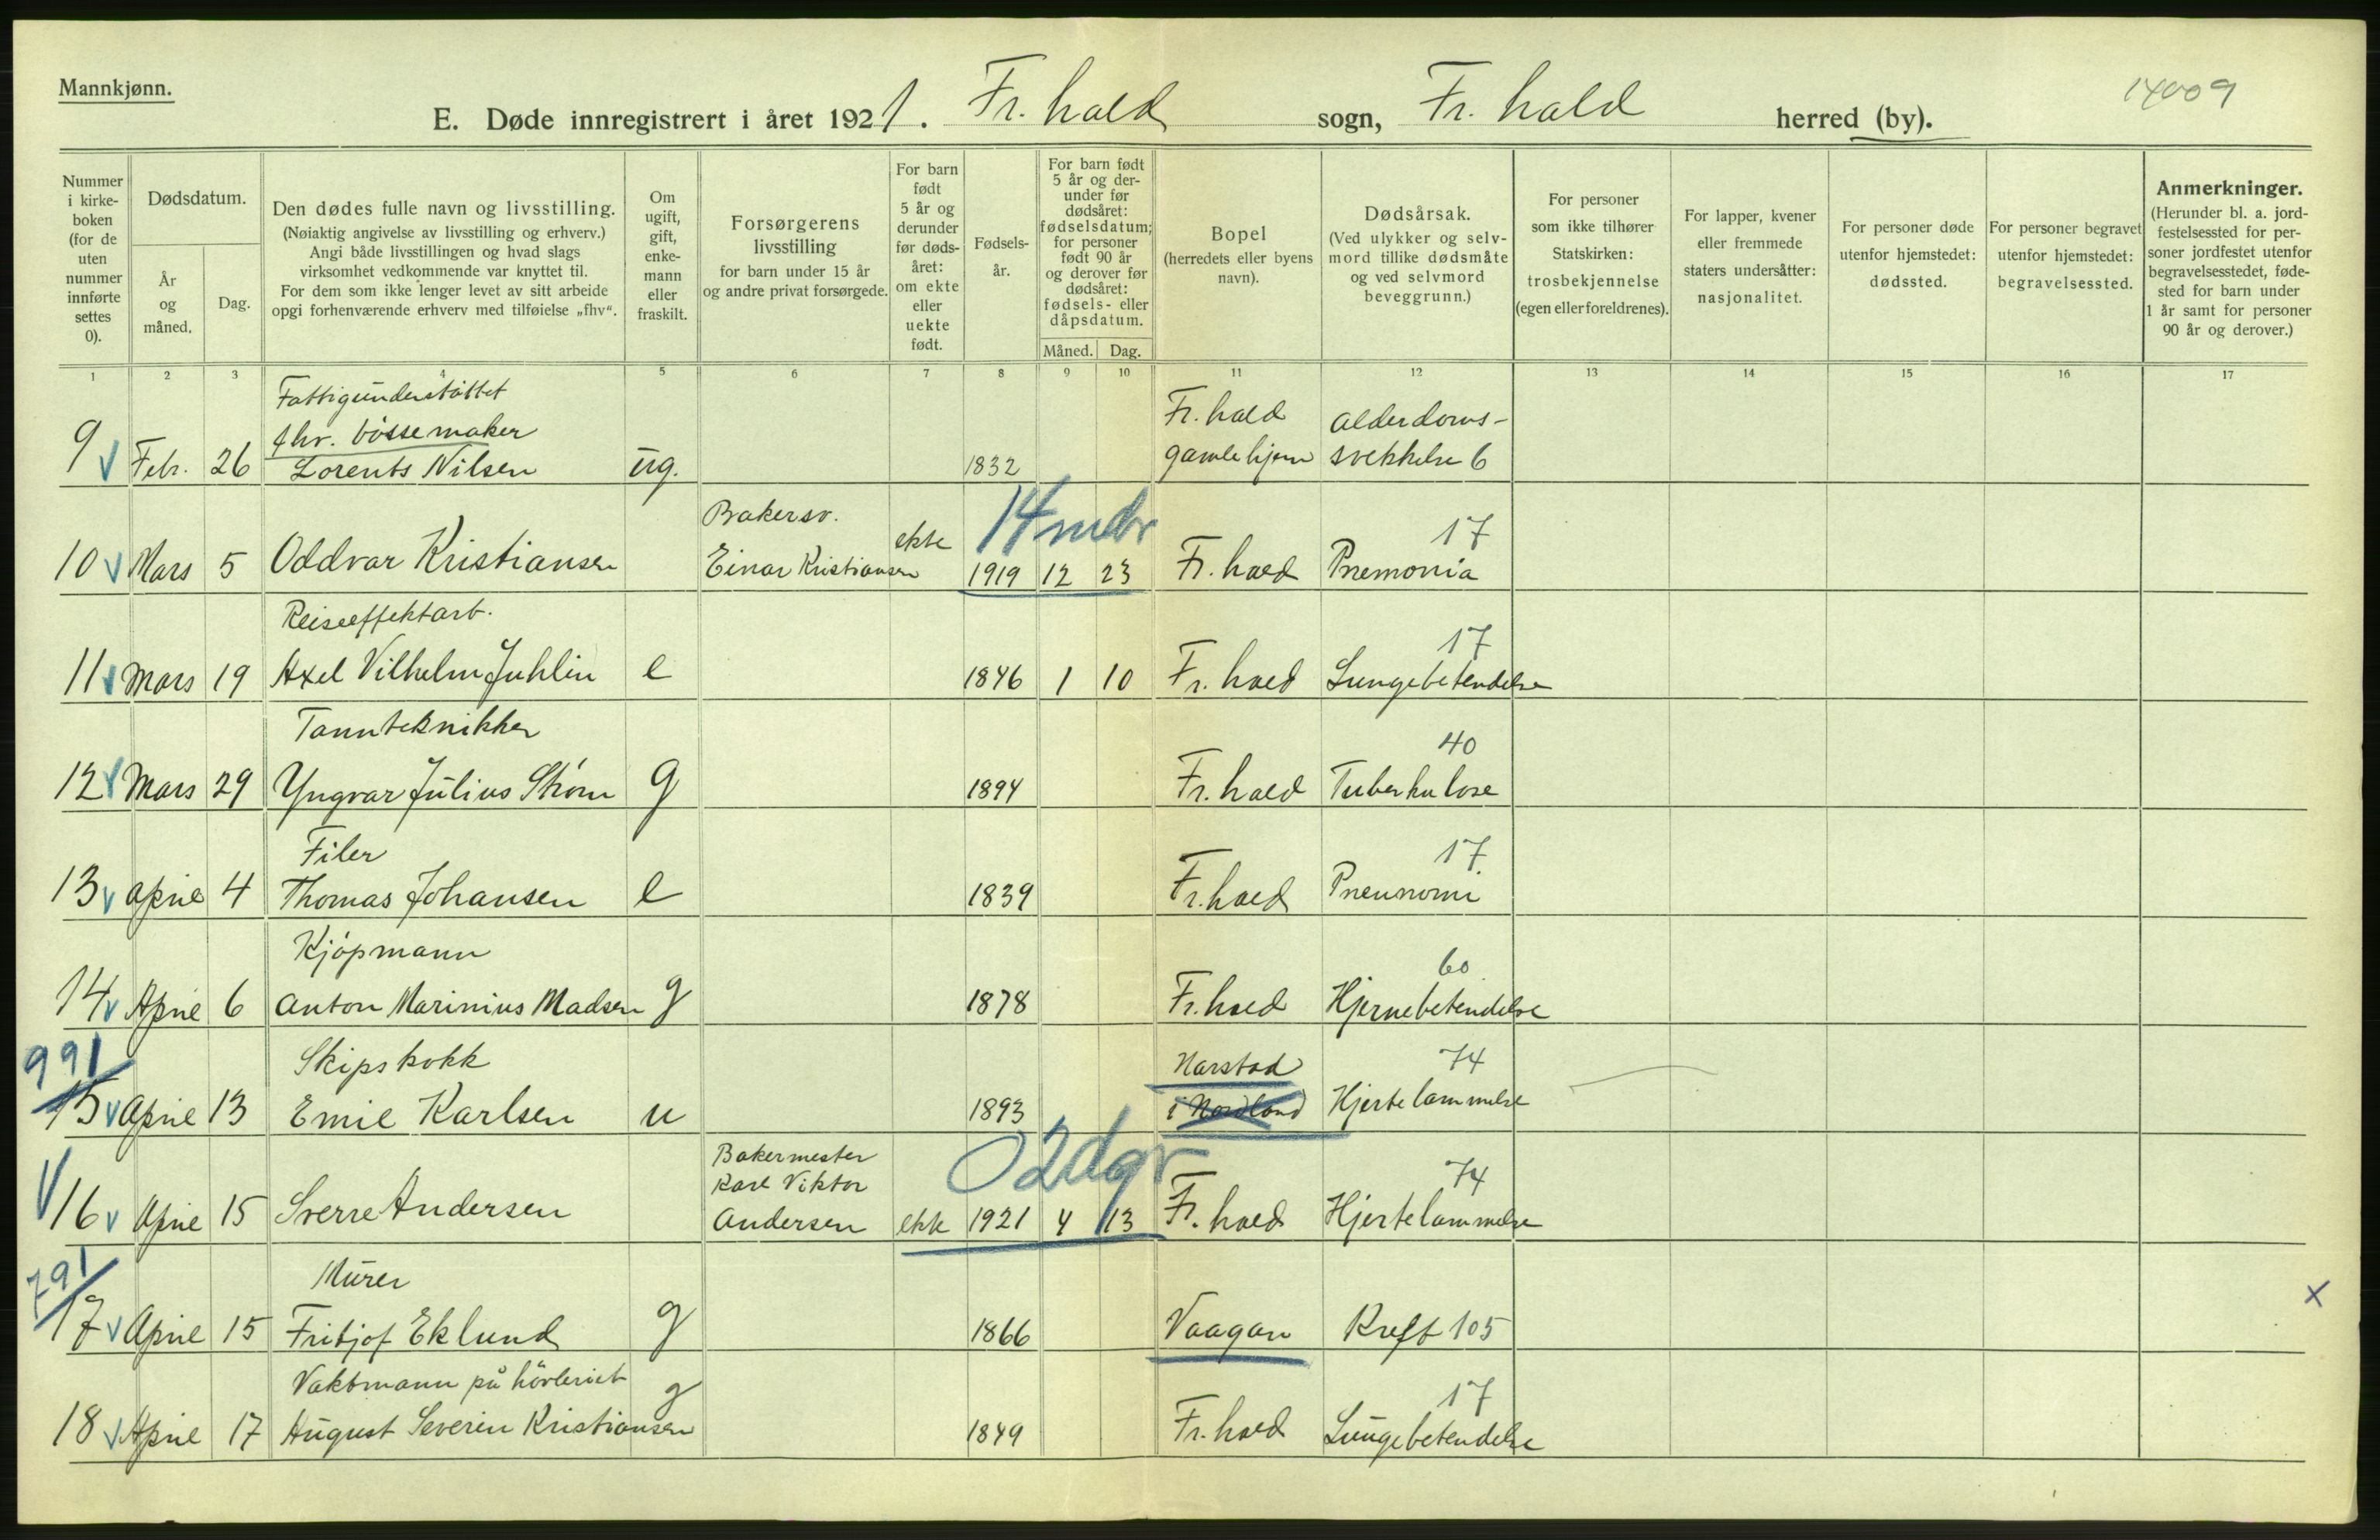 Mannkjønn.
14009
E. Døde innregistrert i året 1921. Fr. hald sogn, Fr. hald herred (by).
Nummer i kirkeboken (for de uten nummer innførte settes 0).
Dødsdatum.
År og måned.
Dag.
Den dødes fulle navn og livsstilling.
(Nøiaktig angivelse av livsstilling og erhverv.)
Angi både livsstillingen og hvad slags
virksomhet vedkommende var knyttet til.
For dem som ikke lenger levet av sitt arbeide
opgi forhenværende erhverv med tilføielse „fhv“.
Om ugift, gift, enkemann eller fraskilt.
Forsørgerens livsstilling
for barn under 15 år
og andre privat forsørgede.
For barn født 5 år og derunder før dødsåret: om ekte eller uekte født.
Fødselsår.
For barn født 5 år og derunder før dødsåret: fødselsdatum; for personer født 90 år og derover før dødsåret: fødsels- eller dåpsdatum.
Måned. Dag.
Bopel
(herredets eller byens navn).
Dødsårsak.
(Ved ulykker og selvmord tillike dødsmåte og ved selvmord beveggrunn.)
For personer som ikke tilhører Statskirken: trosbekjennelse (egen eller foreldrenes).
For lapper, kvener eller fremmede staters undersåtter: nasjonalitet.
For personer døde utenfor hjemstedet: dødssted.
For personer begravet utenfor hjemstedet: begravelsessted.
Anmerkninger.
(Herunder bl. a. jordfestelsessted for personer jordfestet utenfor begravelsesstedet, fødested for barn under 1 år samt for personer 90 år og derover.)
1 2 3 4 5 6 7 8 9 10 11 12 13 14 15 16 17
Fattigunderståttet
fhv. bössemaker Fr. hald alderdoms-
9 Febr. 26 Lorents Nilsen ug. 1832 gamlehjem svekkelse 6
Bakersv. 14 mdr 17
10 Mars 5 Oddvar Kristiansen Einar Kristiansen ekte 1919 12 23 Fr. hald Pnemonia
Reiseeffektarb. 17
11 Mars 19 Axel Vilhelm Juhlin e 1846 1 10 Fr. hald Lungebetendelse
Tannteknikker 40
12 Mars 29 Yngvar Julius Strøm g 1894 Fr. hald Tuberkulose
Filer 17
13 April 4 Thomas Johansen e 1839 Fr. hald Pneunomi
Kjöpmann 60
14 April 6 Anton Marinius Madsen g 1878 Fr. hald Hjernebetendelse
991 Skipskokk Narstad 74
15 April 13 Emil Karlsen u 1893 i Nordland Hjertelammelse
Bakermester
Karl Viktor 02dgr 74
16 April 15 Sverre Andersen Andersen ekte 1921 4 13 Fr. hald Hjertelammelse
791 Murer x
17 April 15 Fritjof Eklund g 1866 Vaagan Kreft 105
Vaktmann på hövleriet 17
18 April 17 August Severin Kristiansen g 1849 Fr. hald Lungebetendelse